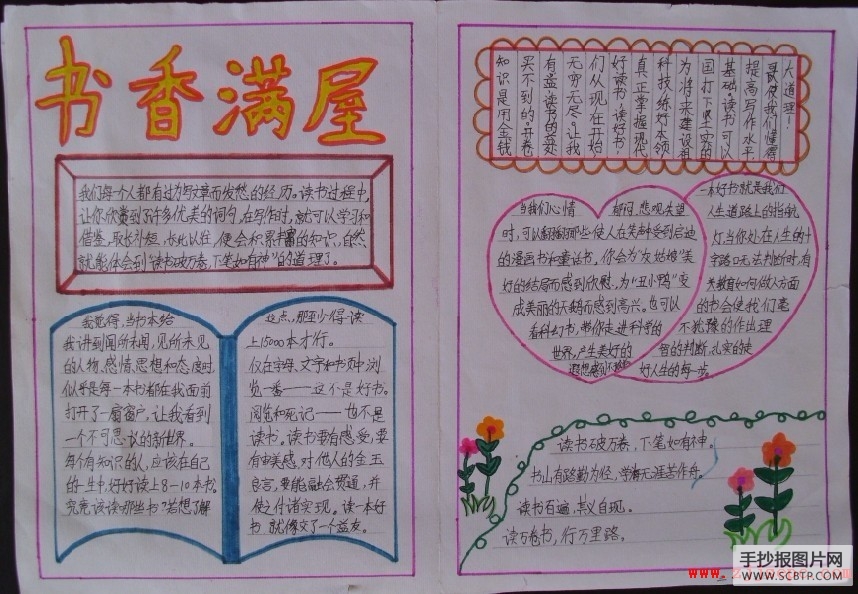 书香满屋
我们每个人都有过为写文章而发愁的经历。读书过程中,
让你欣赏到了许多优美的词句,在写作时,就可以学习和
借鉴,取长补短,长此以往,便会积累丰富的知识,自然
就能体会到"读书破万卷,下笔如有神"的道理了。
我觉得,当书本给
我讲到闻所未闻,见所未见
的人物、感情、思想和态度时,
似乎是每一本书都在我面前
打开了一扇窗户,让我看到
一个不可思议的新世界。
每个有知识的人,应该在自己
的一生中,好好读上8-10本书。
究竟该读哪些书 若想了解
这点,那至少得读
上15000本才行。
仅在字母、文字和书页中浏
览一番——这个是好书。
阅览和死记——也不是
读书。读书要有感受,要
有审美感,对他人的金玉
良言,要能融会贯通,并
使之付诸实现。读一本好
书 就像交了一个益友。
大道理!
歌使我们懂得
提高写作水平
基础。读书可以
国打下坚实的
为将来建设祖
科技,练好本领
真正掌握现代
好读书,读好书!
们从现在开始
无穷无尽,让我
有益,读书的益处
买不到的。开卷
知识是用金钱
当我们心情
郁闷、悲观、失望
时,可以翻翻那些使人在笑声中受到启迪
的漫画书和童话书。你会为"灰姑娘"美
好的结局而感到欣慰,为"丑小鸭"变
成美丽的天鹅而感到高兴。也可以
看科幻书,带你走进科学的
世界,产生美好的
遐想感到不
一本好书就是我们
人生道路上的指航
灯,当你处在人生的十
字路口无法判断时,有
关教育如何做人方面
的书会使我们毫
不犹豫的作出理
智的判断,扎实的走
好人生的每一步。
读书破万卷,下笔如有神。
书山有路勤为径,学海无涯苦作舟。
读书百遍,其义自现。
读万卷书,行万里路。
手抄报图片网
www.SCBTP.com